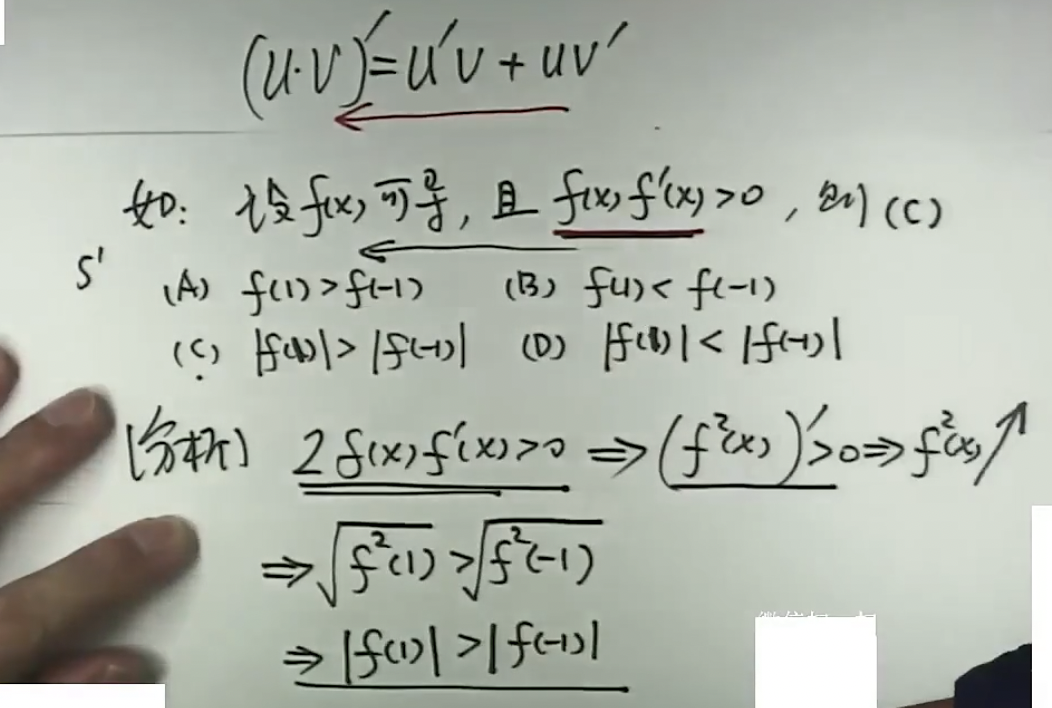 (u·v)′=u′v+uv′
如: 设f(x)可导, 且 f(x)f′(x)>0, 则 (C)
5′
(A) f(1)>f(-1) (B) f(1)<f(-1)
(C) |f(1)|>|f(-1)| (D) |f(1)|<|f(-1)|
[分析] 2f(x)f′(x)>0 ⇒ (f²(x))′>0 ⇒ f²(x)↗
⇒ √f²(1) > √f²(-1)
⇒ |f(1)|>|f(-1)|